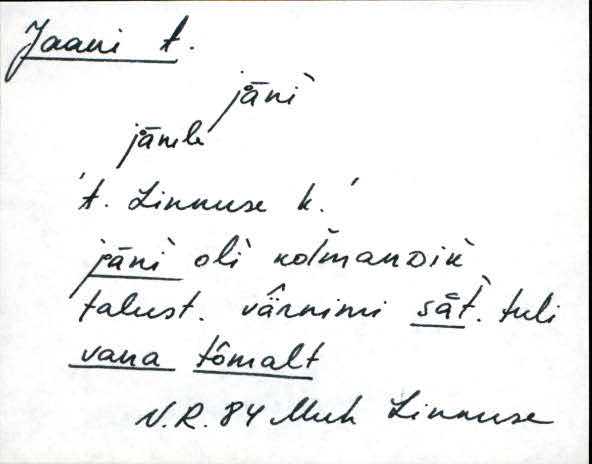 Jaani t.
jāni̊̀
jānele
't. Linnuse k.'
jāni̊̀ oli̊̀ kolmandik
talust. värnimi såt̀. tuli
vana tômalt
N.R. 84 Muh Linnuse